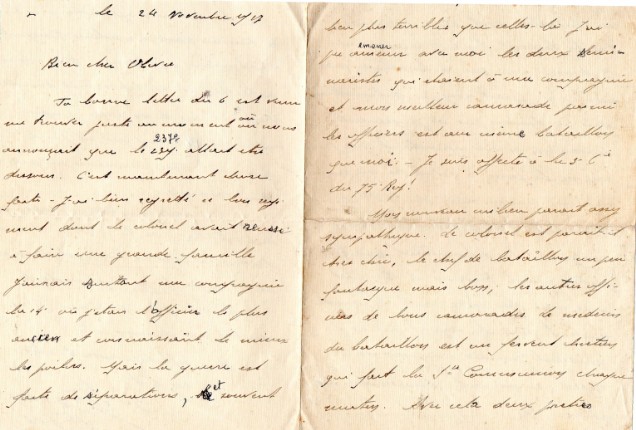 le 24 Novembre 1917
Bien cher Olivie
Ta bonne lettre du 6 est venue
me trouver juste au moment où on nous
237e
annonçait que le 237 allait être
dissous. C'est maintenant chose
faite - J'ai bien regretté ce bon régi
ment dont le colonel avait réussi
à faire une grande famille
J'aimais surtout une compagnie
la 14 où j'étais l'officier le plus
ancien et connaissant le mieux
les poilus. Mais la guerre est
faite de séparations, et souvent
bien plus terribles que celles-là J'ai
pu amener avec moi les deux sémi-
naristes qui étaient à ma compagnie
et mon meilleur camarade parmi
les officiers est au même bataillon
que moi - Je suis affecté à la 5 Cie
du 75 Reg!
Mon nouveau milieu parait assez
sympathique. Le colonel est parait-il
très chic, le chef de bataillon un peu
fantasque mais bon; les autres offi-
ciers de bons camarades le médecin
du bataillon est un fervent chrétien
qui fait la Ste Communion chaque
matin. Avec cela deux prêtres